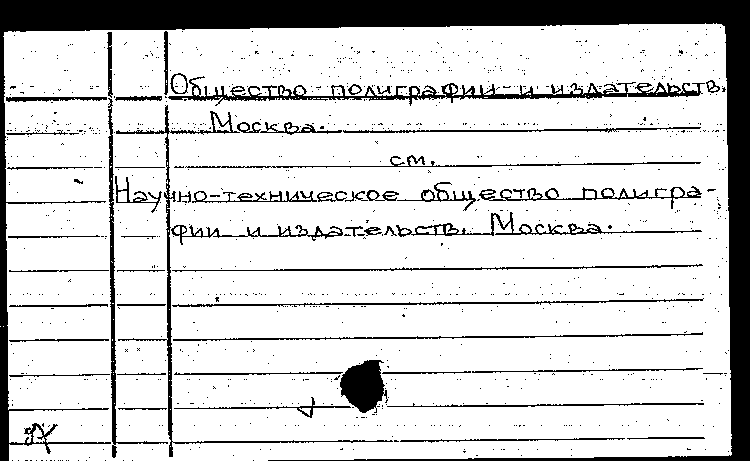 Общество полиграфии и издательств.
Москва.
см.
Научно-техническое общество полигра-
фии и издательств. Москва.